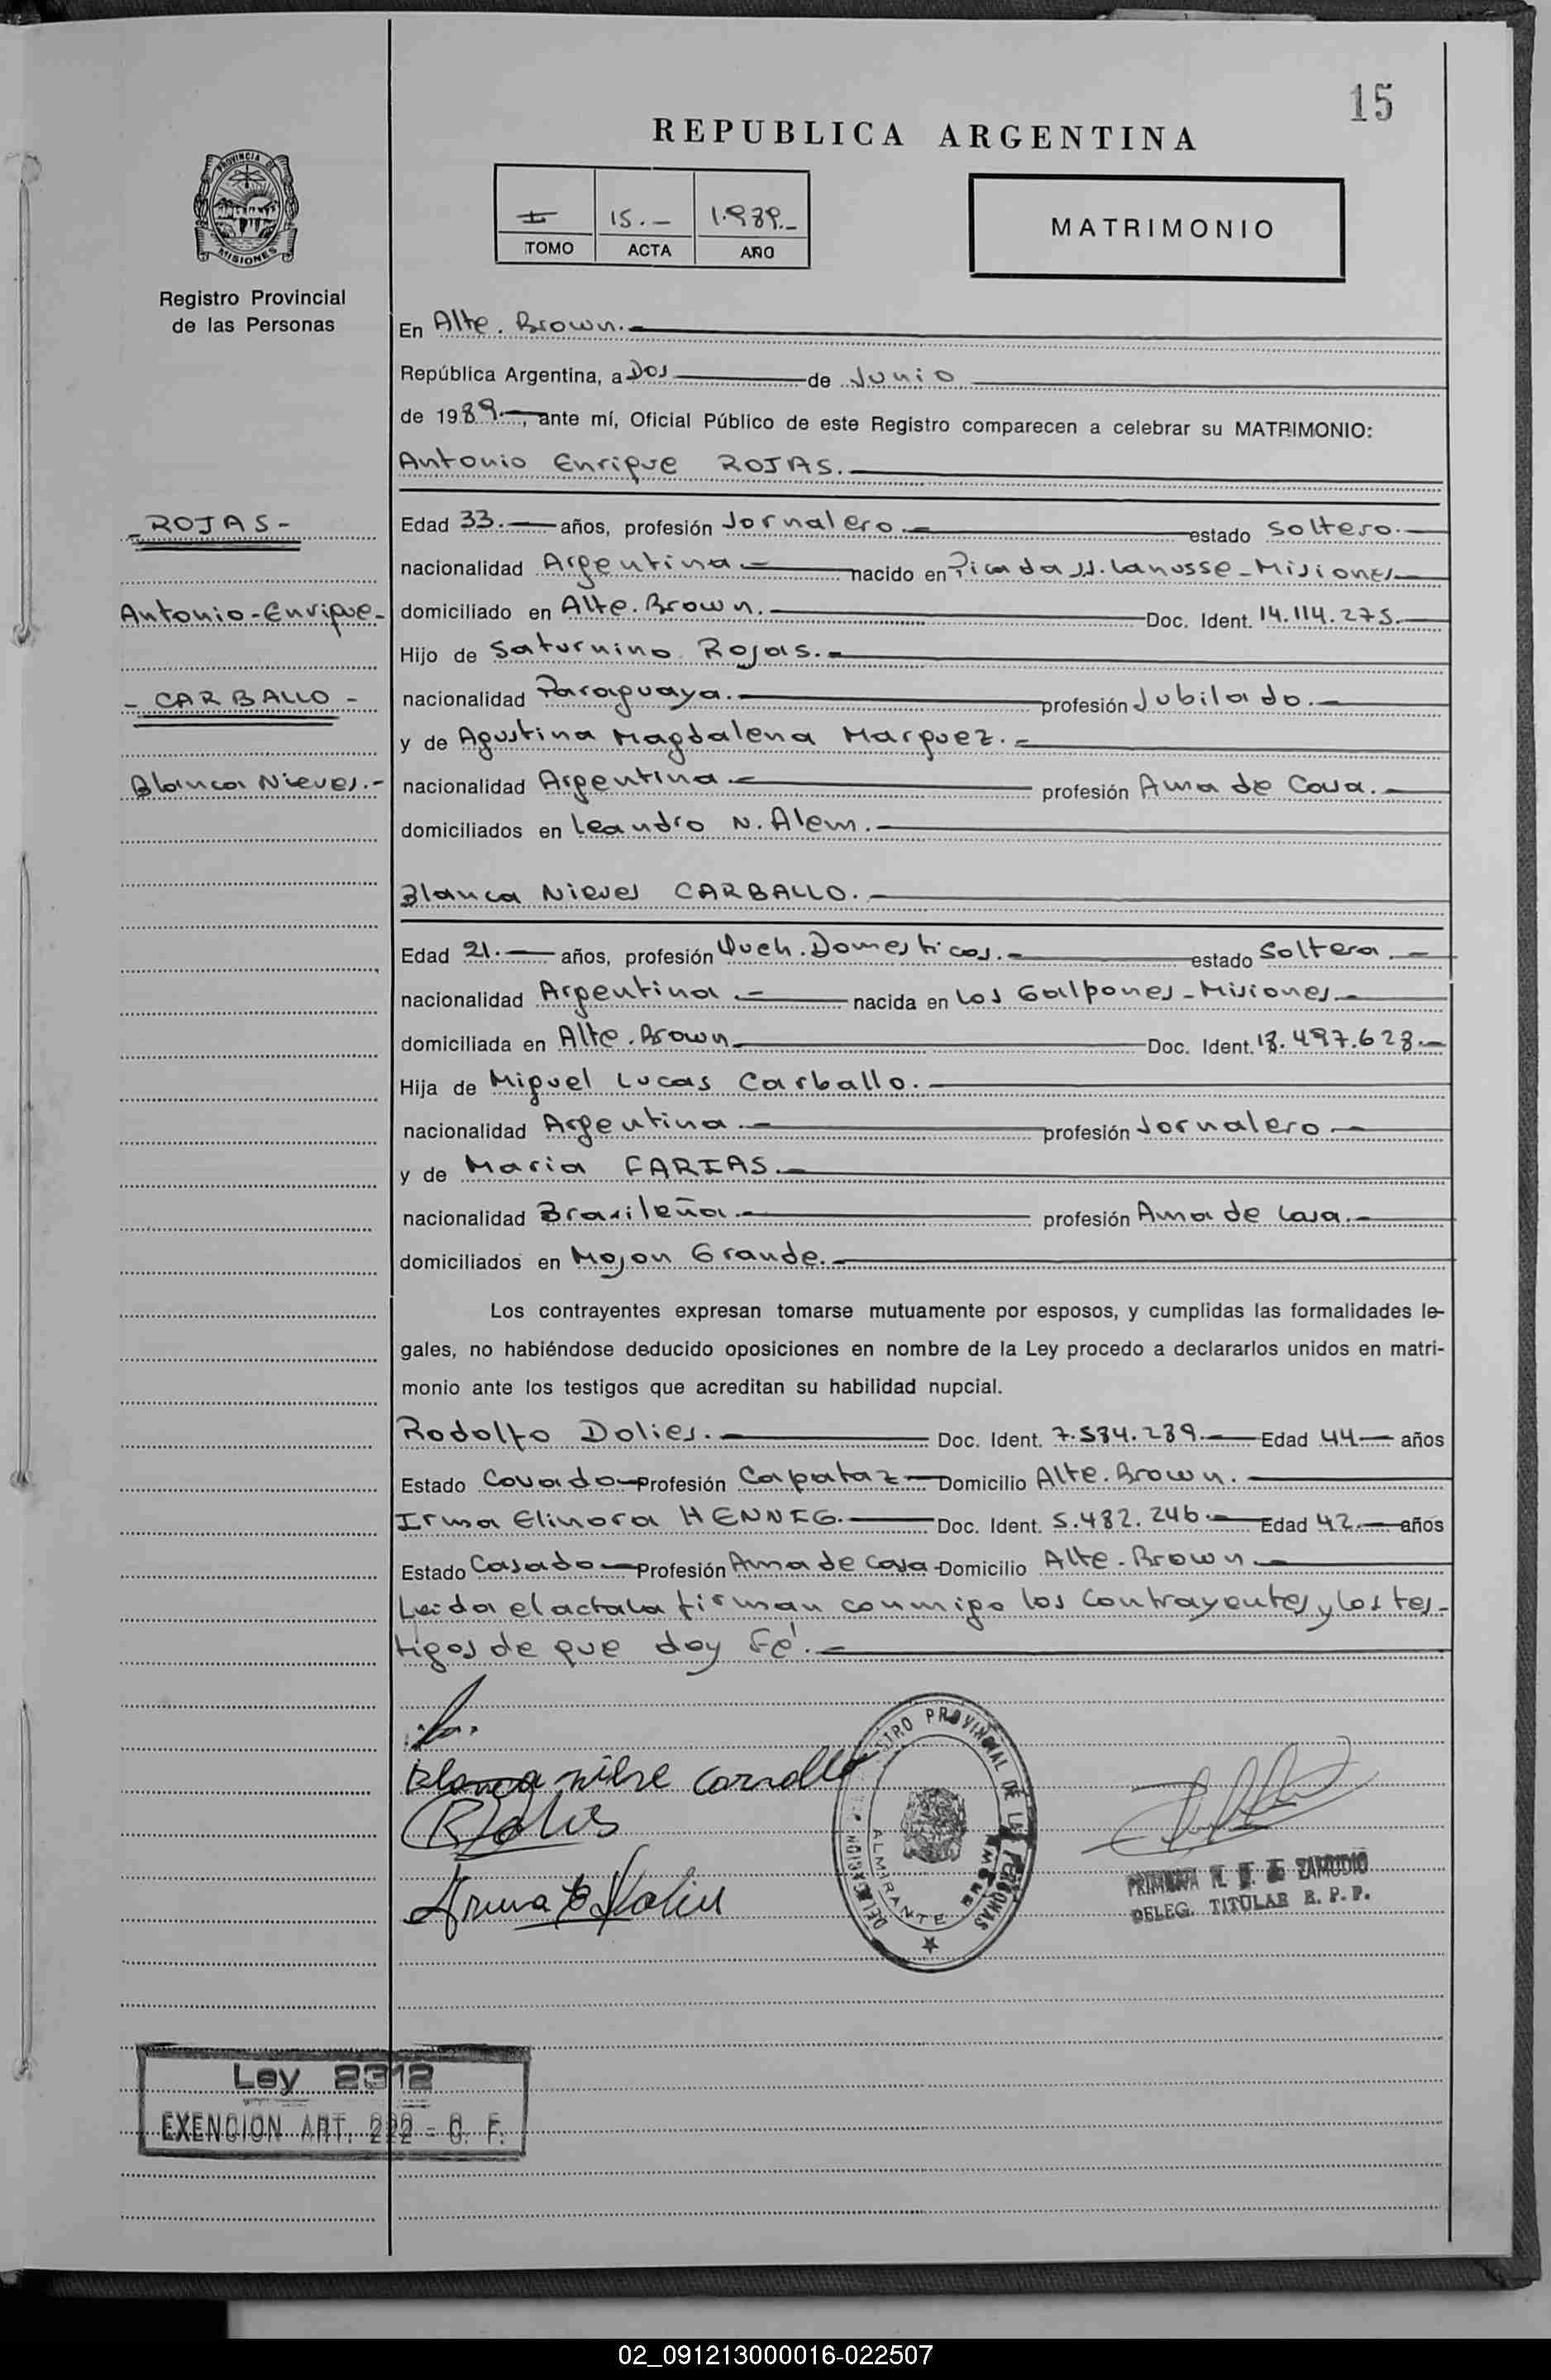 15
REPUBLICA ARGENTINA
I 15.- 1.989.-
TOMO ACTA AÑO
MATRIMONIO
PROVINCIA DE
MISIONES
Registro Provincial
de las Personas
En Alte. Brown.-
República Argentina, a Dos de Junio
de 1989.-, ante mí, Oficial Público de este Registro comparecen a celebrar su MATRIMONIO:
Antonio Enrique ROJAS.
- ROJAS -
Antonio-Enrique-
- CARBALLO -
Blanca Nieves.-
Edad 33.- años, profesión Jornalero.- estado Soltero.-
nacionalidad Argentina.- nacido en Picada J.J. Lanusse-Misiones
domiciliado en Alte. Brown. Doc. Ident. 14.114.275.-
Hijo de Saturnino Rojas.-
nacionalidad Paraguaya.- profesión Jubilado.-
y de Agustina Magdalena Marquez.-
nacionalidad Argentina.- profesión Ama de Casa.-
domiciliados en Leandro N. Alem.-
Blanca Nieves CARBALLO.-
Edad 21.- años, profesión Queh. Domesticos.- estado Soltera.-
nacionalidad Argentina.- nacida en Los Galpones-Misiones-
domiciliada en Alte. Brown Doc. Ident. 18.497.628.-
Hija de Miguel Lucas Carballo.-
nacionalidad Argentina.- profesión Jornalero.-
y de Maria FARIAS.-
nacionalidad Brasileña.- profesión Ama de Casa.-
domiciliados en Mojon Grande.-
Los contrayentes expresan tomarse mutuamente por esposos, y cumplidas las formalidades le-
gales, no habiéndose deducido oposiciones en nombre de la Ley procedo a declararlos unidos en matri-
monio ante los testigos que acreditan su habilidad nupcial.
Rodolfo Dolies.- Doc. Ident. 7.584.289.- Edad 44- años
Estado Casado-Profesión Capataz-Domicilio Alte. Brown.
Irma Elinora HENNIG.- Doc. Ident. 5.482.246.- Edad 42.- años
Estado Casado-Profesión Ama de Casa-Domicilio Alte. Brown.-
Leida el acta la firman conmigo los Contrayentes y los tes-
tigos de que doy Fé.-
Blanca
REGISTRO PROVINCIAL DE LAS PERSONAS
DELEGACION
ALMIRANTE BROWN
ZAMUDIO
DELEG. TITULAR R. P. P.
Ley 2312
EXENCION ART. 222 - C. F.
02_091213000016-022507